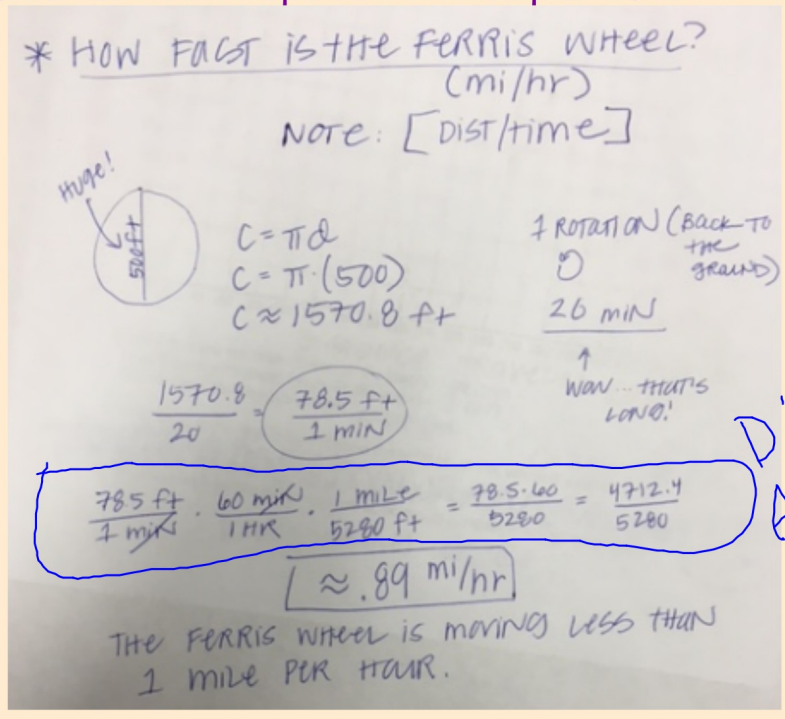 * HOW FAST is the FERRIS WHEEL?
(mi/hr)
NOTE: [DIST/time]
Huge!
500ft
C = πd
C = π·(500)
C ≈ 1570.8 ft
1 ROTATION (Back TO
the
GROUND)
20 min
WOW... THAT'S
LONG!
1570.8/20 = 78.5 ft/1 min
D
78.5 ft/1 min · 60 min/1 HR · 1 mile/5280 ft = 78.5·60/5280 = 4712.4/5280
≈ .89 mi/hr
THE FERRIS WHEEL is moving LESS THAN
1 MILE PER HOUR.